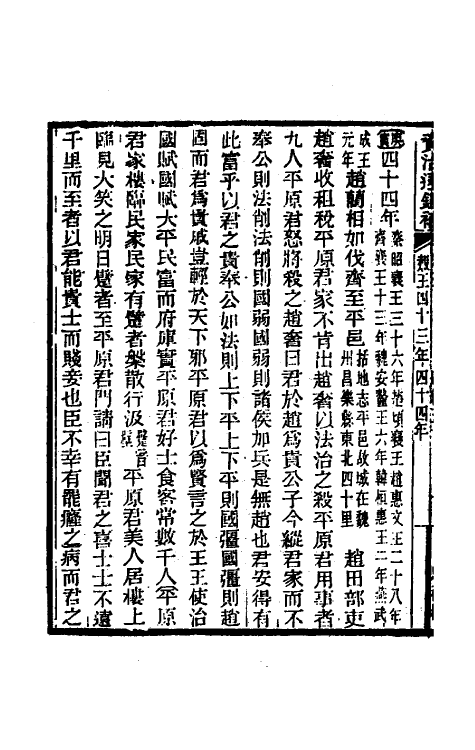 資治通鑑補　赧王四十三年　四十四年
四十四年秦昭襄王三十六年楚頃襄王 趙惠文王二十八年
齊襄王十三年魏安釐王六年韓桓惠王二年燕武
成王元年趙藺相如伐齊至平邑括地志平邑故城在魏州昌樂縣東北四十里　趙田部吏
趙奢收租稅平原君家不肯出趙奢以法治之殺平原君用事者
九人平原君怒將殺之趙奢曰君於趙爲貴公子今縱君家而不
奉公則法削法削則國弱國弱則諸侯加兵是無趙也君安得有
此富乎以君之貴奉公如法則上下平上下平則國彊國彊則趙
固而君爲貴戚豈輕於天下邪平原君以爲賢言之於王王使治
國賦國賦大平民富而府庫實平原君好士食客常數千人平原
君家樓臨民家民家有躄者槃散行汲躄音 平原君美人居樓上
臨見大笑之明日躄者至平原君門請曰臣聞君之喜士士不遠
千里而至者以君能貴士而賤妾也臣不幸有罷癃之病而君之